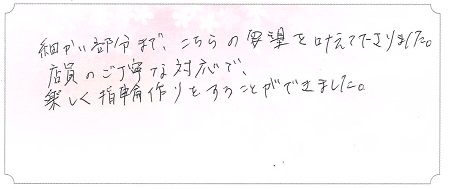 細かい部分まで、こちらの要望を叶えて下さりました。
店員のご丁寧な対応で、
楽しく指輪作りをすることができました。